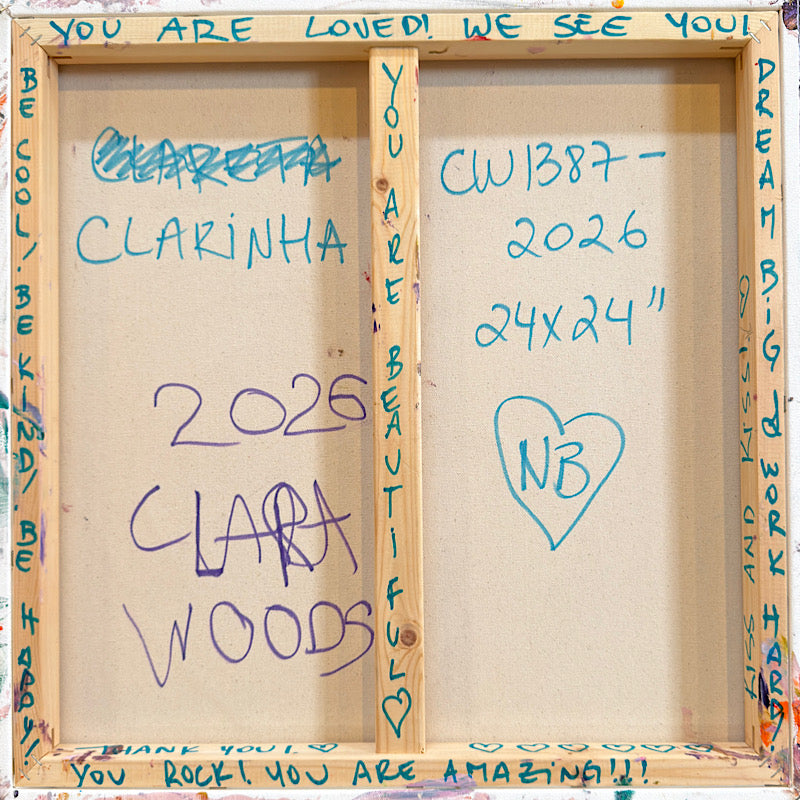 YOU ARE LOVED! WE SEE YOU!
BE COOL! BE KIND! BE HAPPY!
CLARINHA
2026
CLARA
WOODS
YOU ARE BEAUTIFUL♡
CW1387-
2026
24X24"
NB
KISS AND
DREAM BIG & WORK HARD!
THANK YOU! ♡
♡ ♡ ♡ ♡ ♡ ♡
YOU ROCK! YOU ARE AMAZING!!!